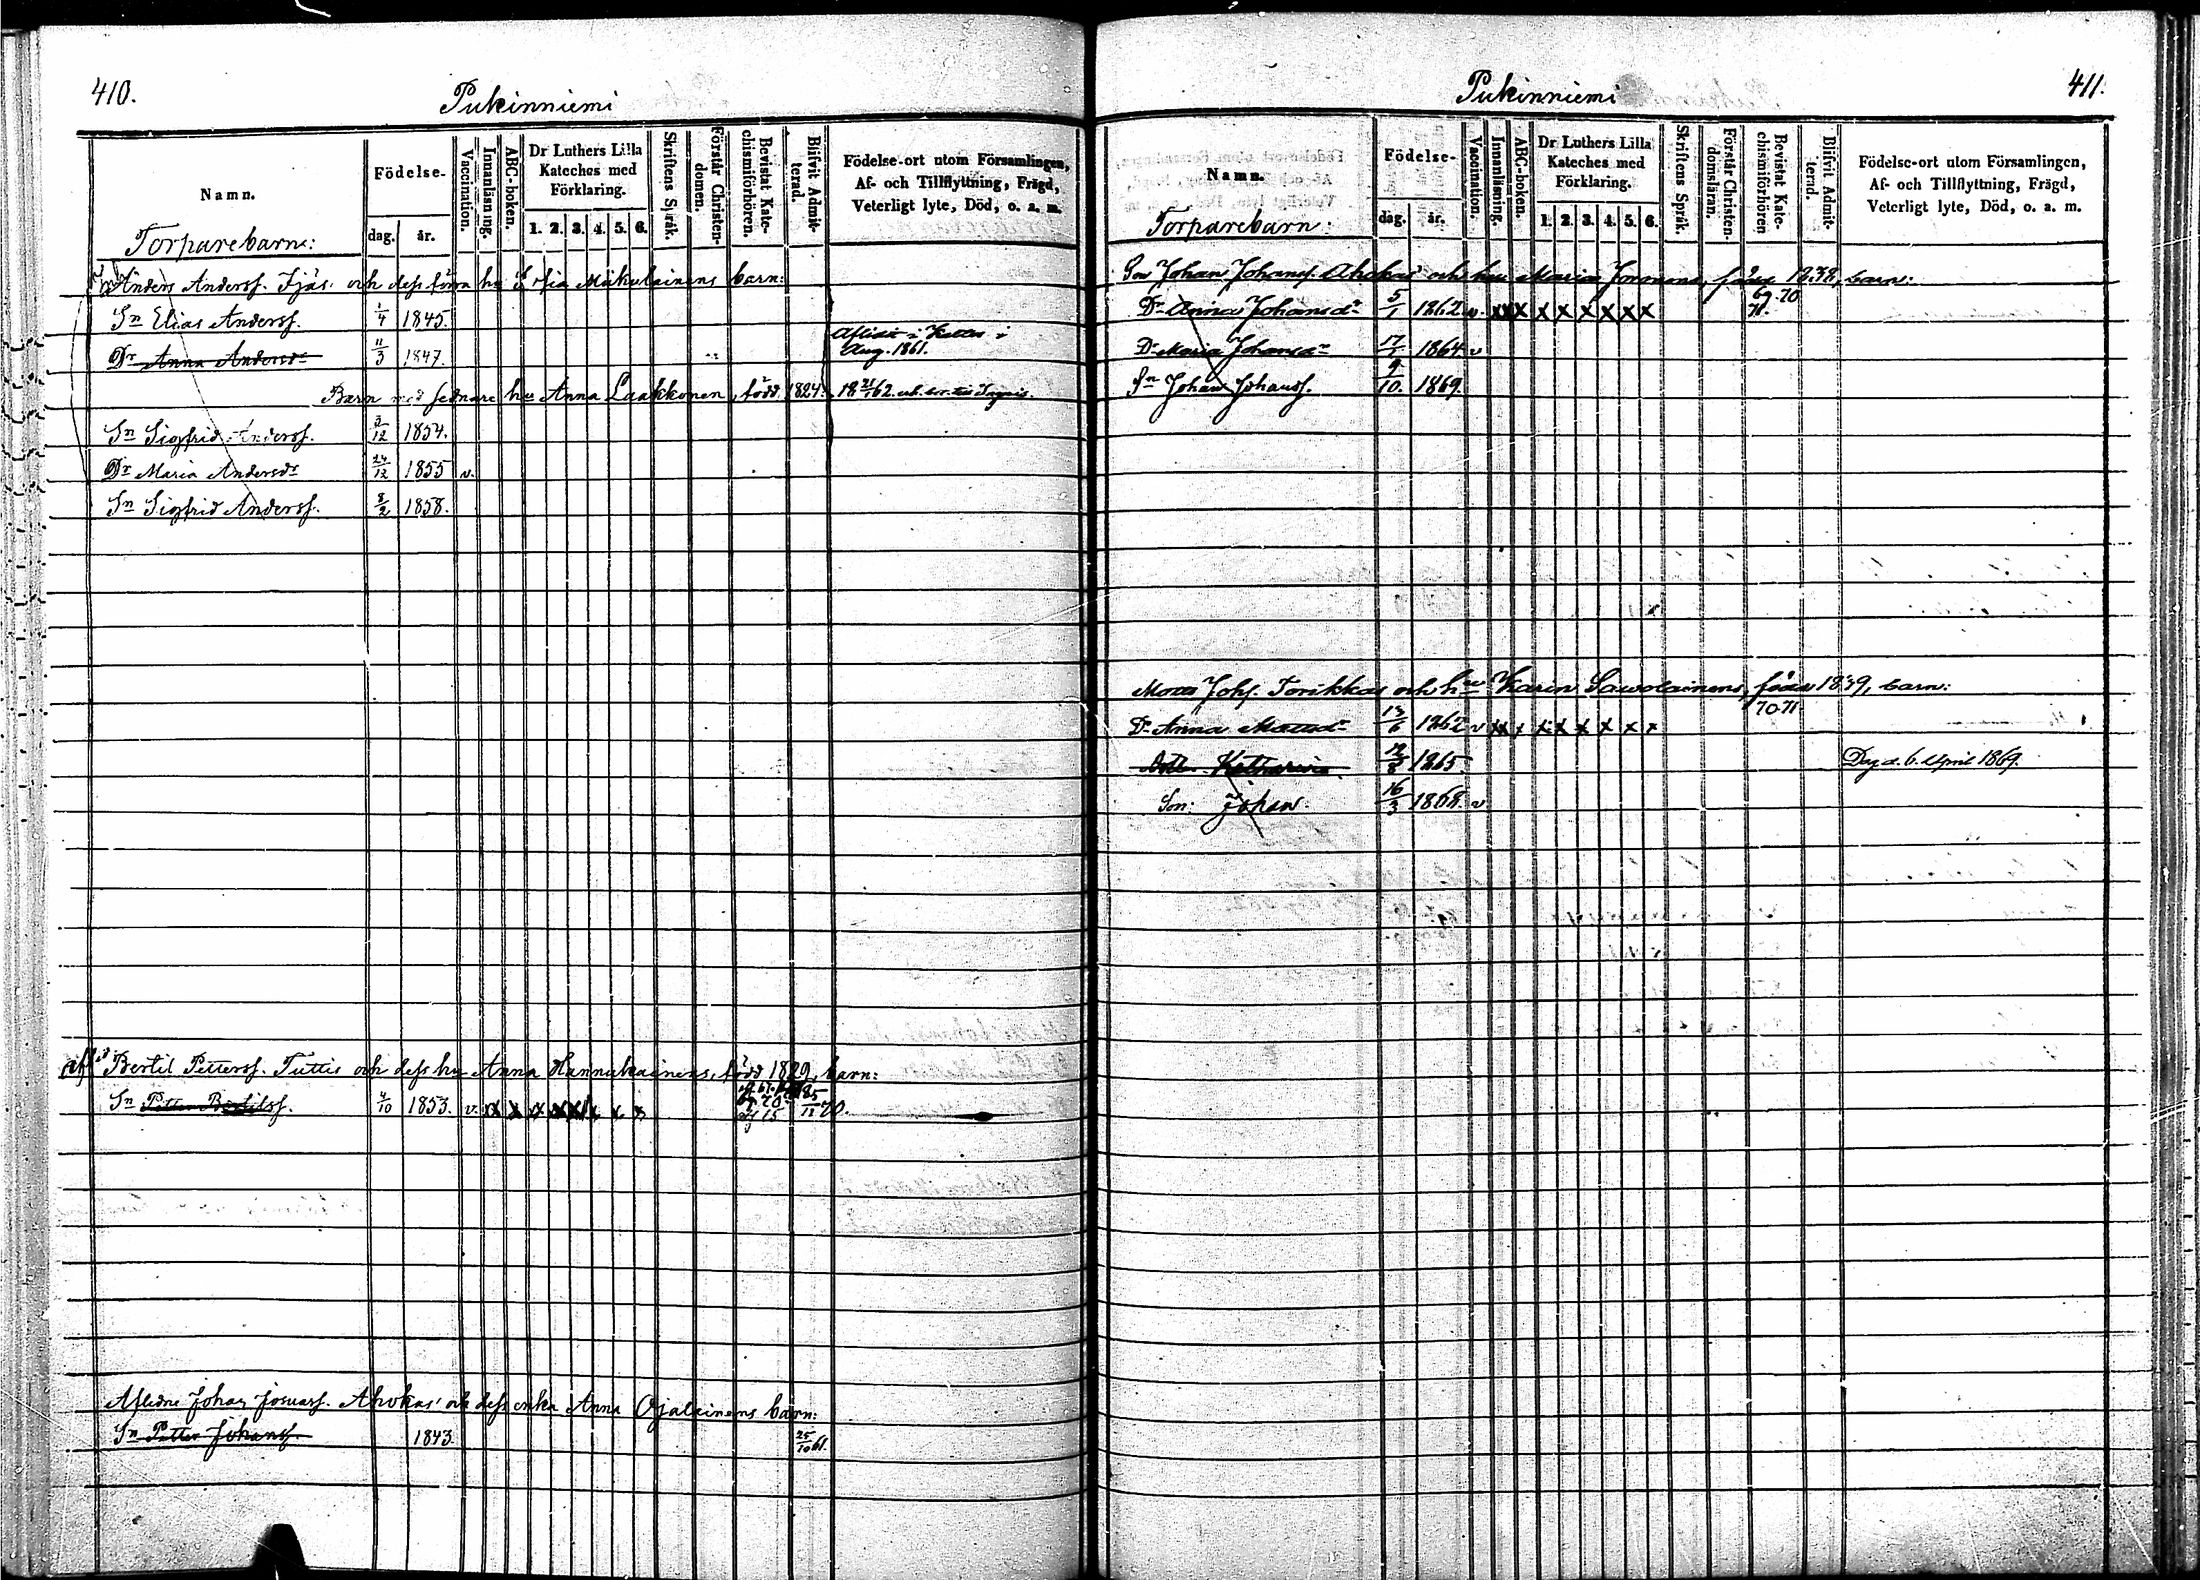 410.
Pukinniemi
Namn.
Födelse-
dag.
år.
Vaccination.
Innanläsning.
ABC-boken.
Dr Luthers Lilla
Kateches med
Förklaring.
1. 2. 3. 4. 5. 6.
Skriftens Språk.
Förstår Christen-
domen.
Bevistat Kate-
chismiförhören.
Blifvit Admit-
terad.
Födelse-ort utom Församlingen,
Af- och Tillflyttning, Frägd,
Veterligt lyte, Död, o. a. m.
Torparebarn:
Anders Anderss. Ijäs och dess förra hu Sofia Mikulainens barn:
Sn Elias Anderss. 1/4 1845.
Dr Anna Andersdr 11/3 1847. Afliden i i
Aug. 1861.
Barn med sednare hu Anna Laakkonen, född 1824. 18 21/1 62.
Sn Sigfrid Anderss. 3/12 1854.
Dr Maria Andersdr 24/12 1855 v.
Sn Sigfrid Anderss. 8/2 1858.
Bertil Petterss. Tuttis och dess hu Anna Hannukainens, född 1829, barn:
Sn Petter Bertilss. 4/10 1853. v. x x x x x x x x 70.
Aflidne Johan Josuass. Ahokas' och dess enka Anna Ojalainens barn:
Sn Petter Johanss. 1843. 25/10 61.
411.
Pukinniemi
Namn.
Födelse-
dag.
år.
Vaccination.
Innanläsning.
ABC-boken.
Dr Luthers Lilla
Kateches med
Förklaring.
1. 2. 3. 4. 5. 6.
Skriftens Språk.
Förstår Christen-
domsläran.
Bevistat Kate-
chismiförhören
Blifvit Admit-
terad.
Födelse-ort utom Församlingen,
Af- och Tillflyttning, Frägd,
Veterligt lyte, Död, o. a. m.
Torparebarn:
Son Johan Johanss. Ahokas' och hu Maria Joronens, född 1838, barn:
Dr Anna Johansdr 5/1 1862. v. x x x x x x x x x 69.70
71.
Dr Maria Johansdr 17/1 1864 v
Sn Johan Johanss. 9/10. 1869.
Moses Johs. Torikkas och hu Karin Sawolainens, född 1839, barn:
Dr Anna Mosesdr 13/6 1862 v x x x x x x x x x 70 71
Dottr Katharina 12/8 1865. Dog d. 6 April 1869.
Son: Johan. 16/3 1868. v